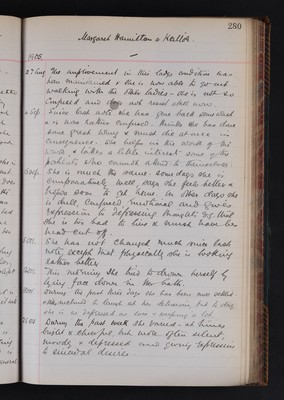 280
Margaret Hamilton or Keillor
1905.
27 Aug The improvement in this lady's condition has
been maintained & she is now able to go out
walking with the other ladies - she is not so
confused and does not resist still now.
4 Sep. Since last note she has gone back somewhat
& is more confused thinks she has done
some great wrong & must die at once in
consequence. She helps in the work of the
ward & takes a little interest some of the
patients who cannot attend to themselves.
She is much the same. Some days she is
comparatively well says she feels better &
hopes soon to get home. On other days she
is dull, confused, emotional and gives
expression to depressing thoughts e.g. that
she is too bad to live & must have her
head cut off.
8 Oct. She has not changed much since last
note, except that physically she is looking
rather better.
This morning she tried to drown herself by
lying face down in her bath.
During the past three days she has been more settled.
She, inclined to laugh at her behaviour, but to day
she is as depressed as ever & weeping a lot.
During the past week she varied - at times
bright & cheerful, but more often silent,
moody & depressed and giving expression
to suicidal desires.